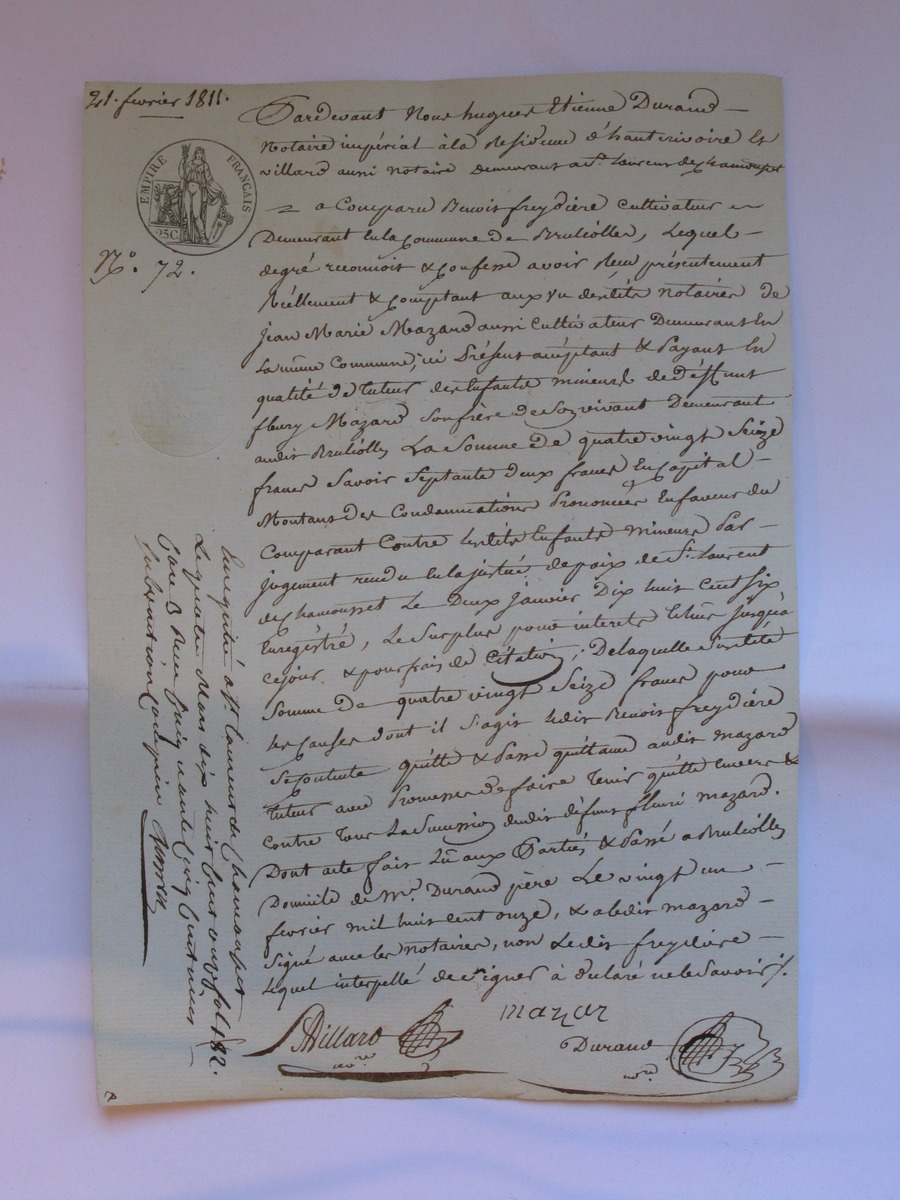 21. fevrier 1811.
EMPIRE FRANÇAIS
25C.
N°. 72.
Pardevant Nous hugues Etienne Durand —
Notaire impérial à la Residence d'hauterivoire Et
villard aussi notaire Demeurant a St. Laurent de chamousset
a Comparu Benoit freydière Cultivateur
Demeurant En la Commune de Brulliolles, Lequel —
de gré reconnoit & confesse avoir Reçu présentement
Réellement & comptant aux vu desdits notaires de
Jean Marie Mazard aussi Cultivateur Demeurant En
La même Commune, ici Présent acceptant & Payant En
qualité de tuteur des Enfants mineurs de Déffunt
fleury Mazard son frère de son vivant Demeurant
audit Brulliolles La Somme De quatre vingt Seize
francs Savoir Septante deux francs En Capital —
Montant des Condamnations Prononcées En faveur du
Comparant Contre lesdits Enfants mineurs Par —
jugement rendu En la justice de paix de St. Laurent
de chamousset Le Deux Janvier Dix huit Cent Six
Enregistré, Le Surplus pour interets Echus jusqu'à
ce jour & pour frais de Citation; De laquelle Susdite
Somme De quatre vingt Seize francs pour
les causes dont il s'agit ledit Benoit freydière
Se contente quitte & Passe quittance audit mazard
tuteur avec Promesse de faire tenir quitte Envers &
Contre tous La Succession dudit défunt fleuri mazard.
Dont acte fait Lû aux Parties & Passé a Brulliolles
Domicile de Mr. Durand père Le vingt un —
fevrier mil huit cent onze, & a ledit mazard —
Signé avec les notaires, non Ledit freydière —
Lequel interpellé de Signer à déclaré ne le Savoir /.
Villard
nore.
mazar
Durand
nore.
Enregistré à St. Laurent de Chamousset
Le quatre Mars dix huit Cent onze fol 182.
Case 3 Reçu Cinquante Cinq Centimes —
Subvention Comprise